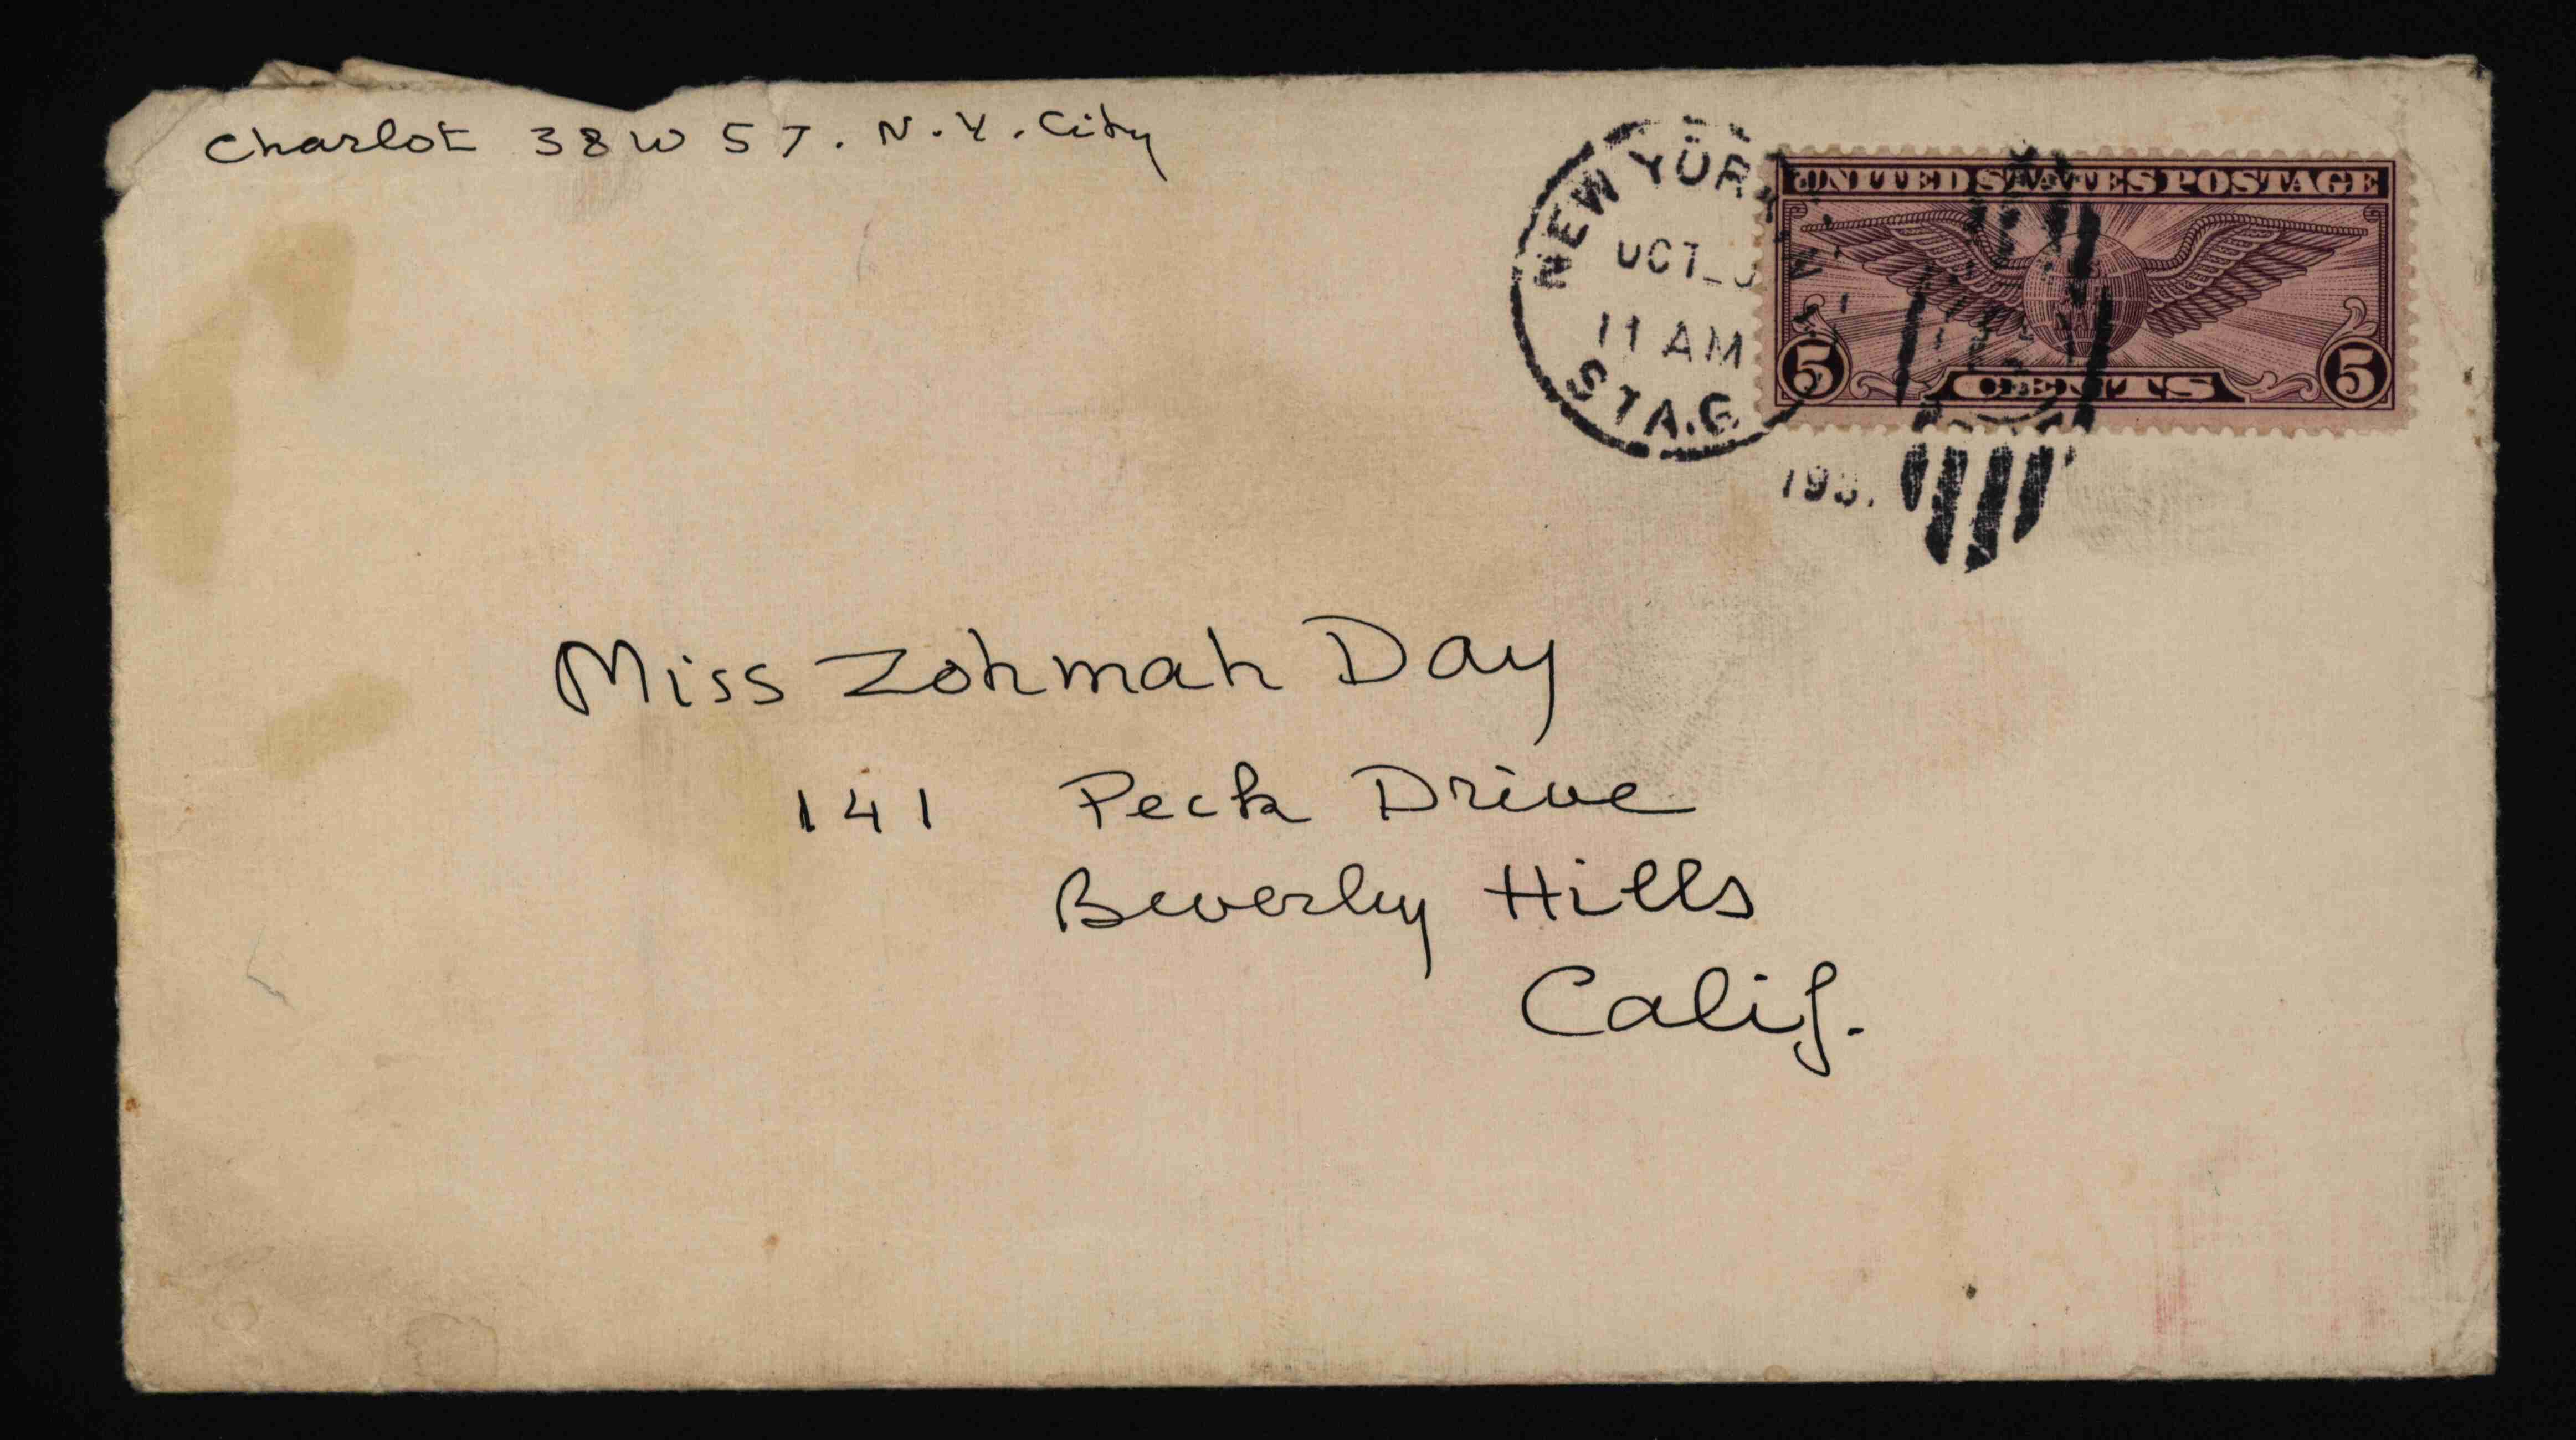 Charlot 38 W 57. N.Y. City
NEW YORK
OCT
11 AM
STA.G
UNITED STATES POSTAGE
5 CENTS 5
Miss Zohmah Day
141 Peck Drive
Beverly Hills
Calif.